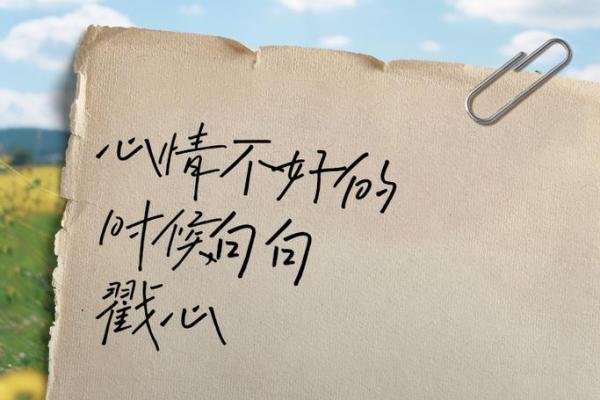 心情不好的
时候句句
戳心